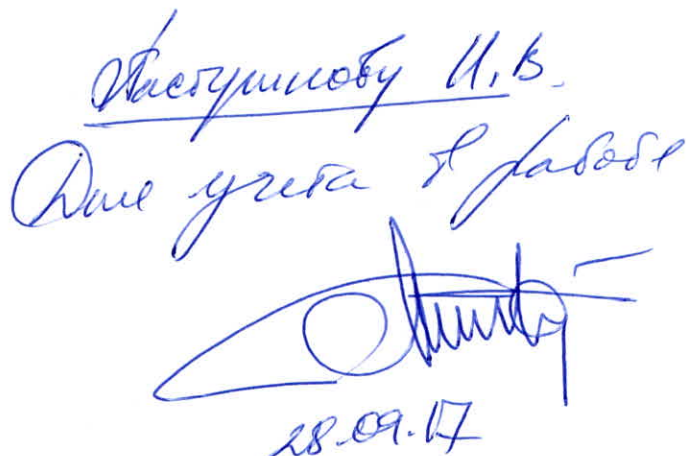 Пастушкову И.В.
Для учета в работе
28.09.17